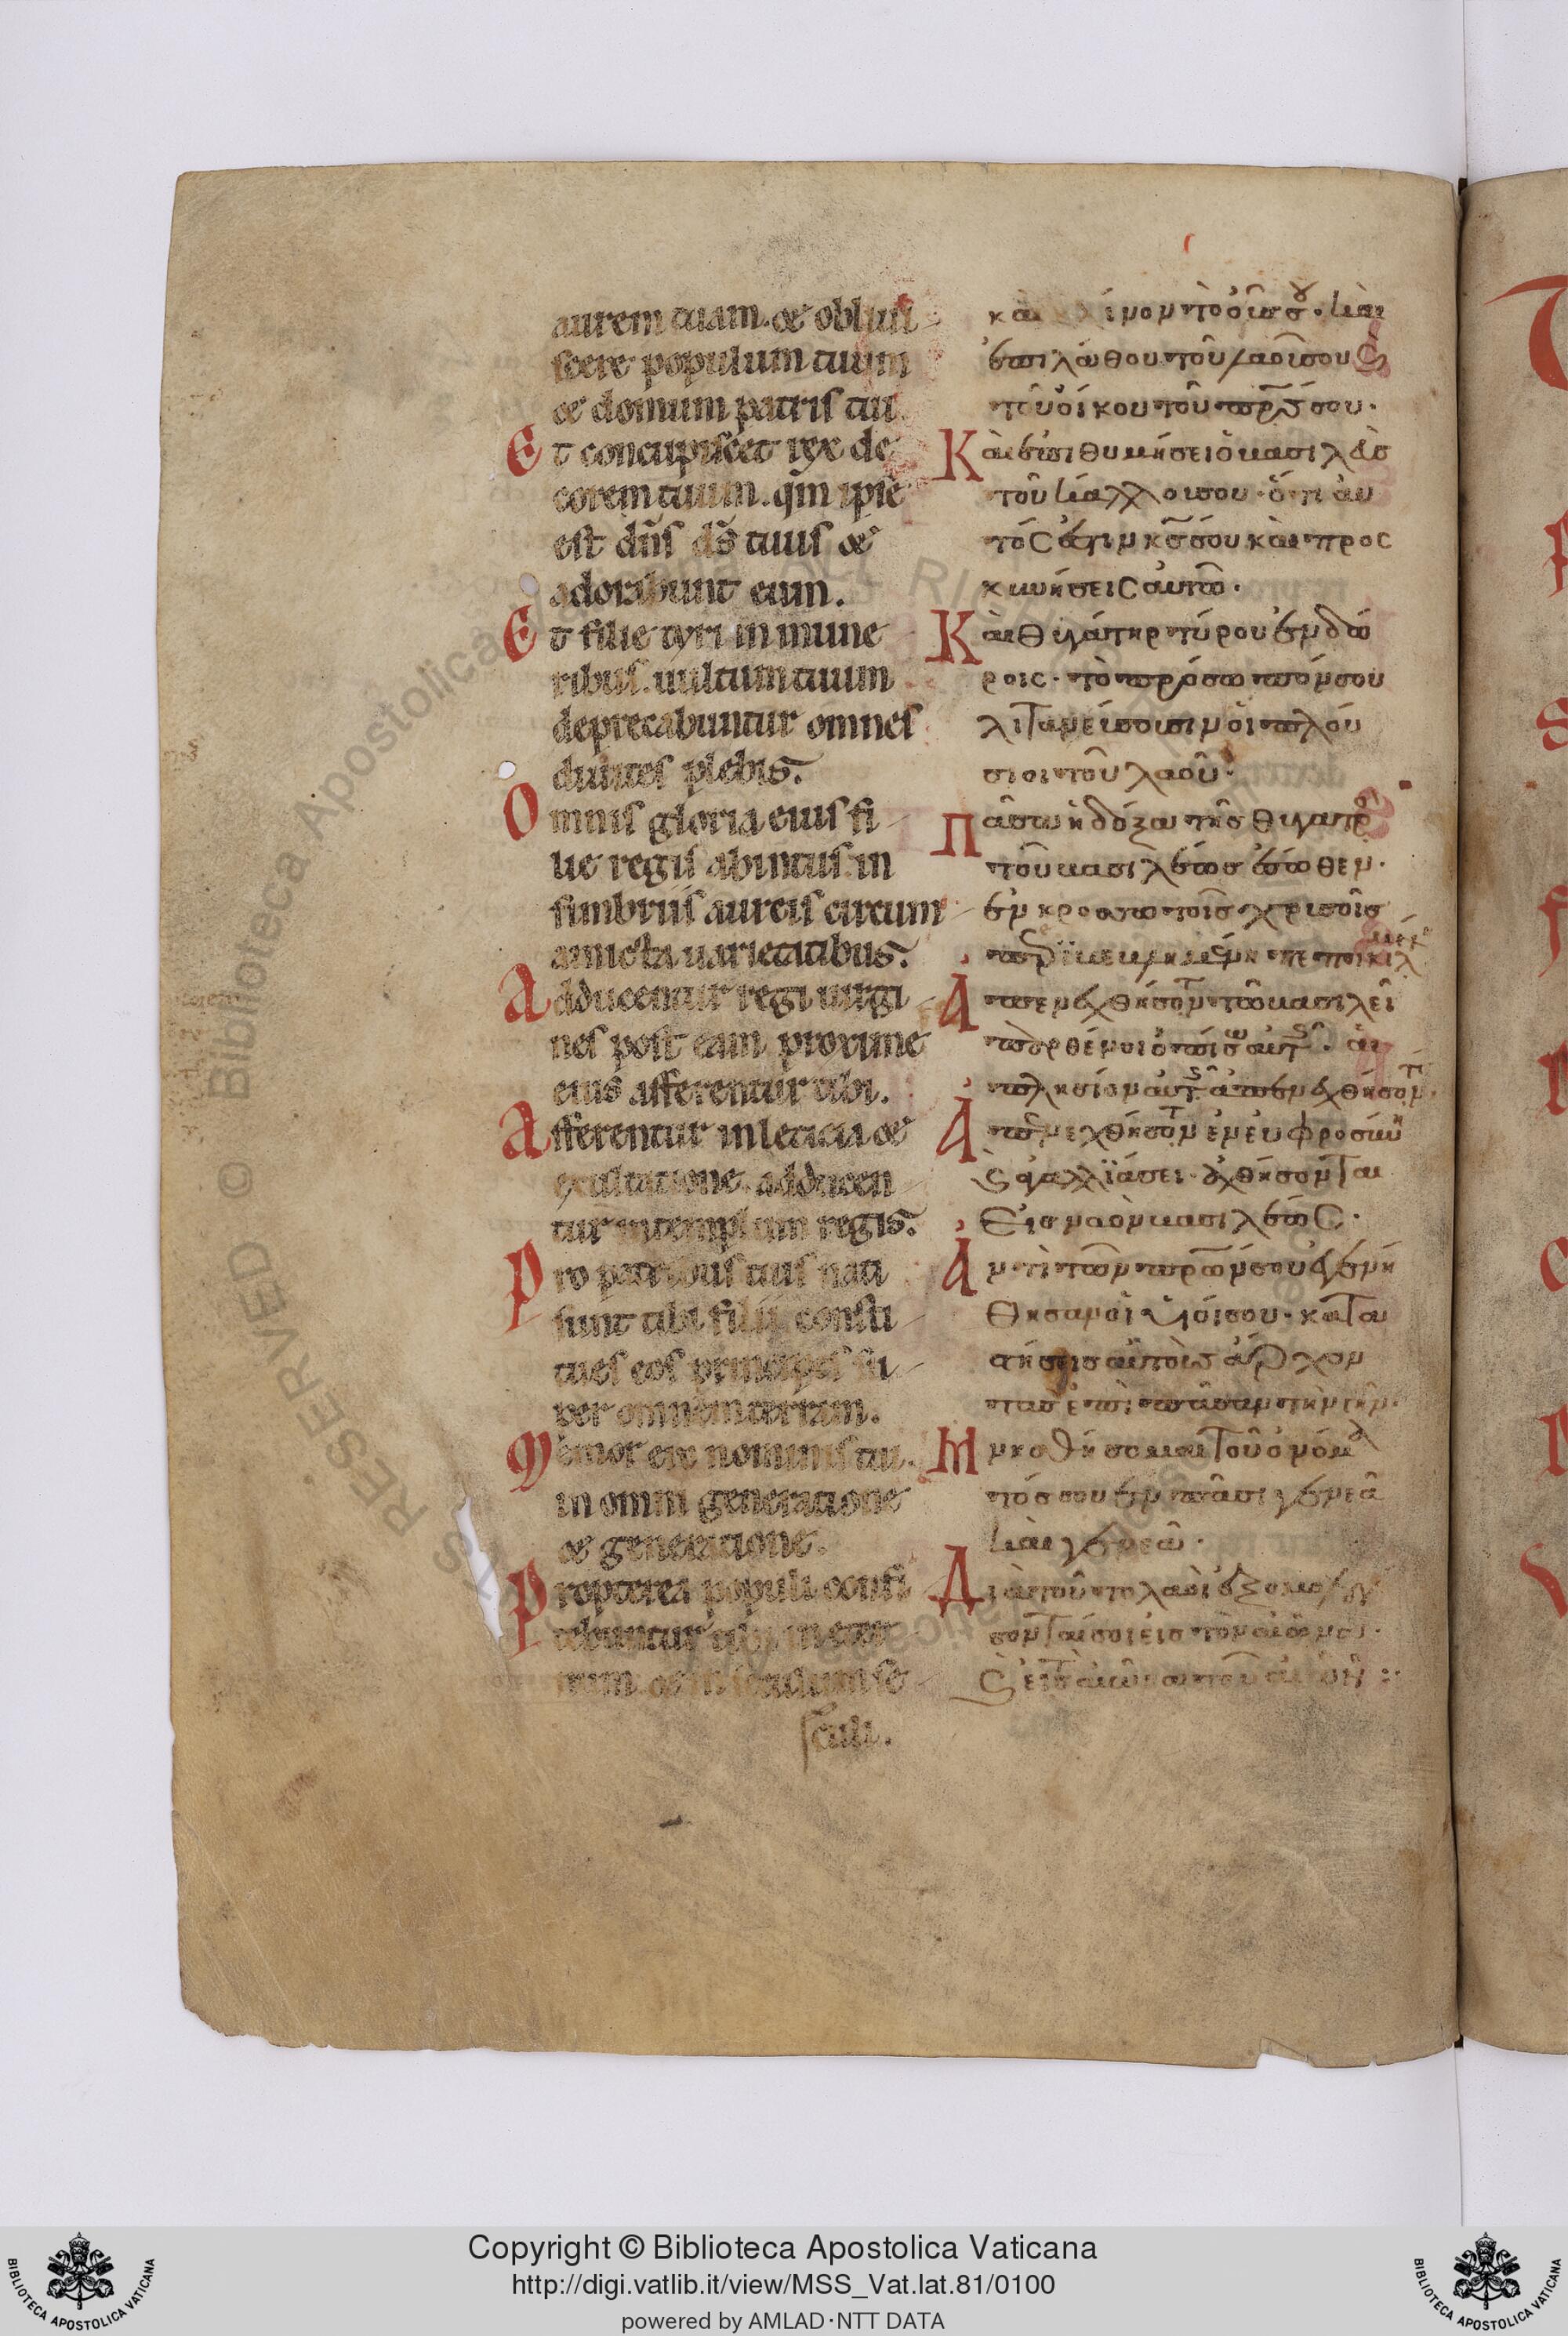 aurem tuam. et obliui
scere populum tuum
et domum patris tui
Et concupiscet rex de
corem tuum. qm̄ ipse
est dn̄s ds̄ tuus et
adorabunt eum.
Et filie tyri in mune
ribus. uultum tuum
deprecabuntur omnes
diuites plebis.
Omnis gloria eius fi
lie regis abintus. in
fimbriis aureis circum
amicta uarietatibus.
Adducentur regi uirgi
nes post eam proxime
eius afferentur tibi.
Afferentur in leticia et
exultatione. adducen
tur in templum regis.
Pro patribus tuis nati
sunt tibi filii consti
tues eos principes su
per omnem terram.
Memor ero nominis tui.
in omni generatione
et generatione.
Propterea populi confi
tebuntur tibi in eter
num et in seculum se
culi.
κὰι τὸ οὖς σου · κὰι
ἐπιλάθου τοῦ λαοῦ σου ϛ
τοῦ ὀίκου τοῦ πρ̅ς σου ·
Κὰι ἐπιθυμήσει ὁ βασιλεὺς
τοῦ κάλλους σου · ὅτι ἀυ
τός ἐστιν κ̅ς σου κὰι προς
κυνήσεις ἀυτῶ ·
Κὰι θυγάτηρ τύρου ἐν δώ
ροις · τὸ πρόσωπόν σου
λιτανεύσουσιν ὁι πλού
σιοι τοῦ λαοῦ ·
Πᾶσα ἡ δόξα τῆς θυγατρ
τοῦ βασιλέως ἔσωθεν ·
ἐν κροσσωτοῖς χρυσοῖς
Ἀπενεχθήσοντ τῶ βασιλεῖ
παρθένοι ὀπίσω ἀυτς · ἁι
πλησίον ἀυτς ἀπενεχθήσοντ ·
Ἀπενεχθήσοντ ἐν ἐυφροσύν
ϛ ἀγαλλϊάσει · ἀχθήσονται
Εις ναὸν βασιλέως ·
Ἀντὶ τῶν πρ̅ων σου ἐγενή
θησαν ὁι ὑιόι σου · κατα
στήσεις ἀυτοὺς ἄρχον
τας ἐπὶ πᾶσαν τὴν γῆν ·
Μνησθήσομαι τοῦ ὀνόμα
τός σου ἐν πᾶσι γενεᾶ
κὰι γενεᾶ ·
Διὰ τοῦτο λαὸι ἐξομολογ
σονταί σοι ἐις τὸν ἀιῶνα ·
Copyright © Biblioteca Apostolica Vaticana
http://digi.vatlib.it/view/MSS_Vat.lat.81/0100
powered by AMLAD·NTT DATA